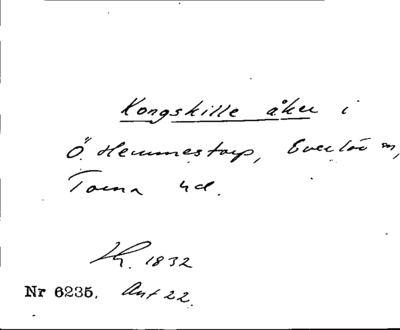 Kongskille åker i
Ö. Hemmestorp, Everlöv sn,
Torna hd.
Lk. 1832
Nr 6235. Ant 22.